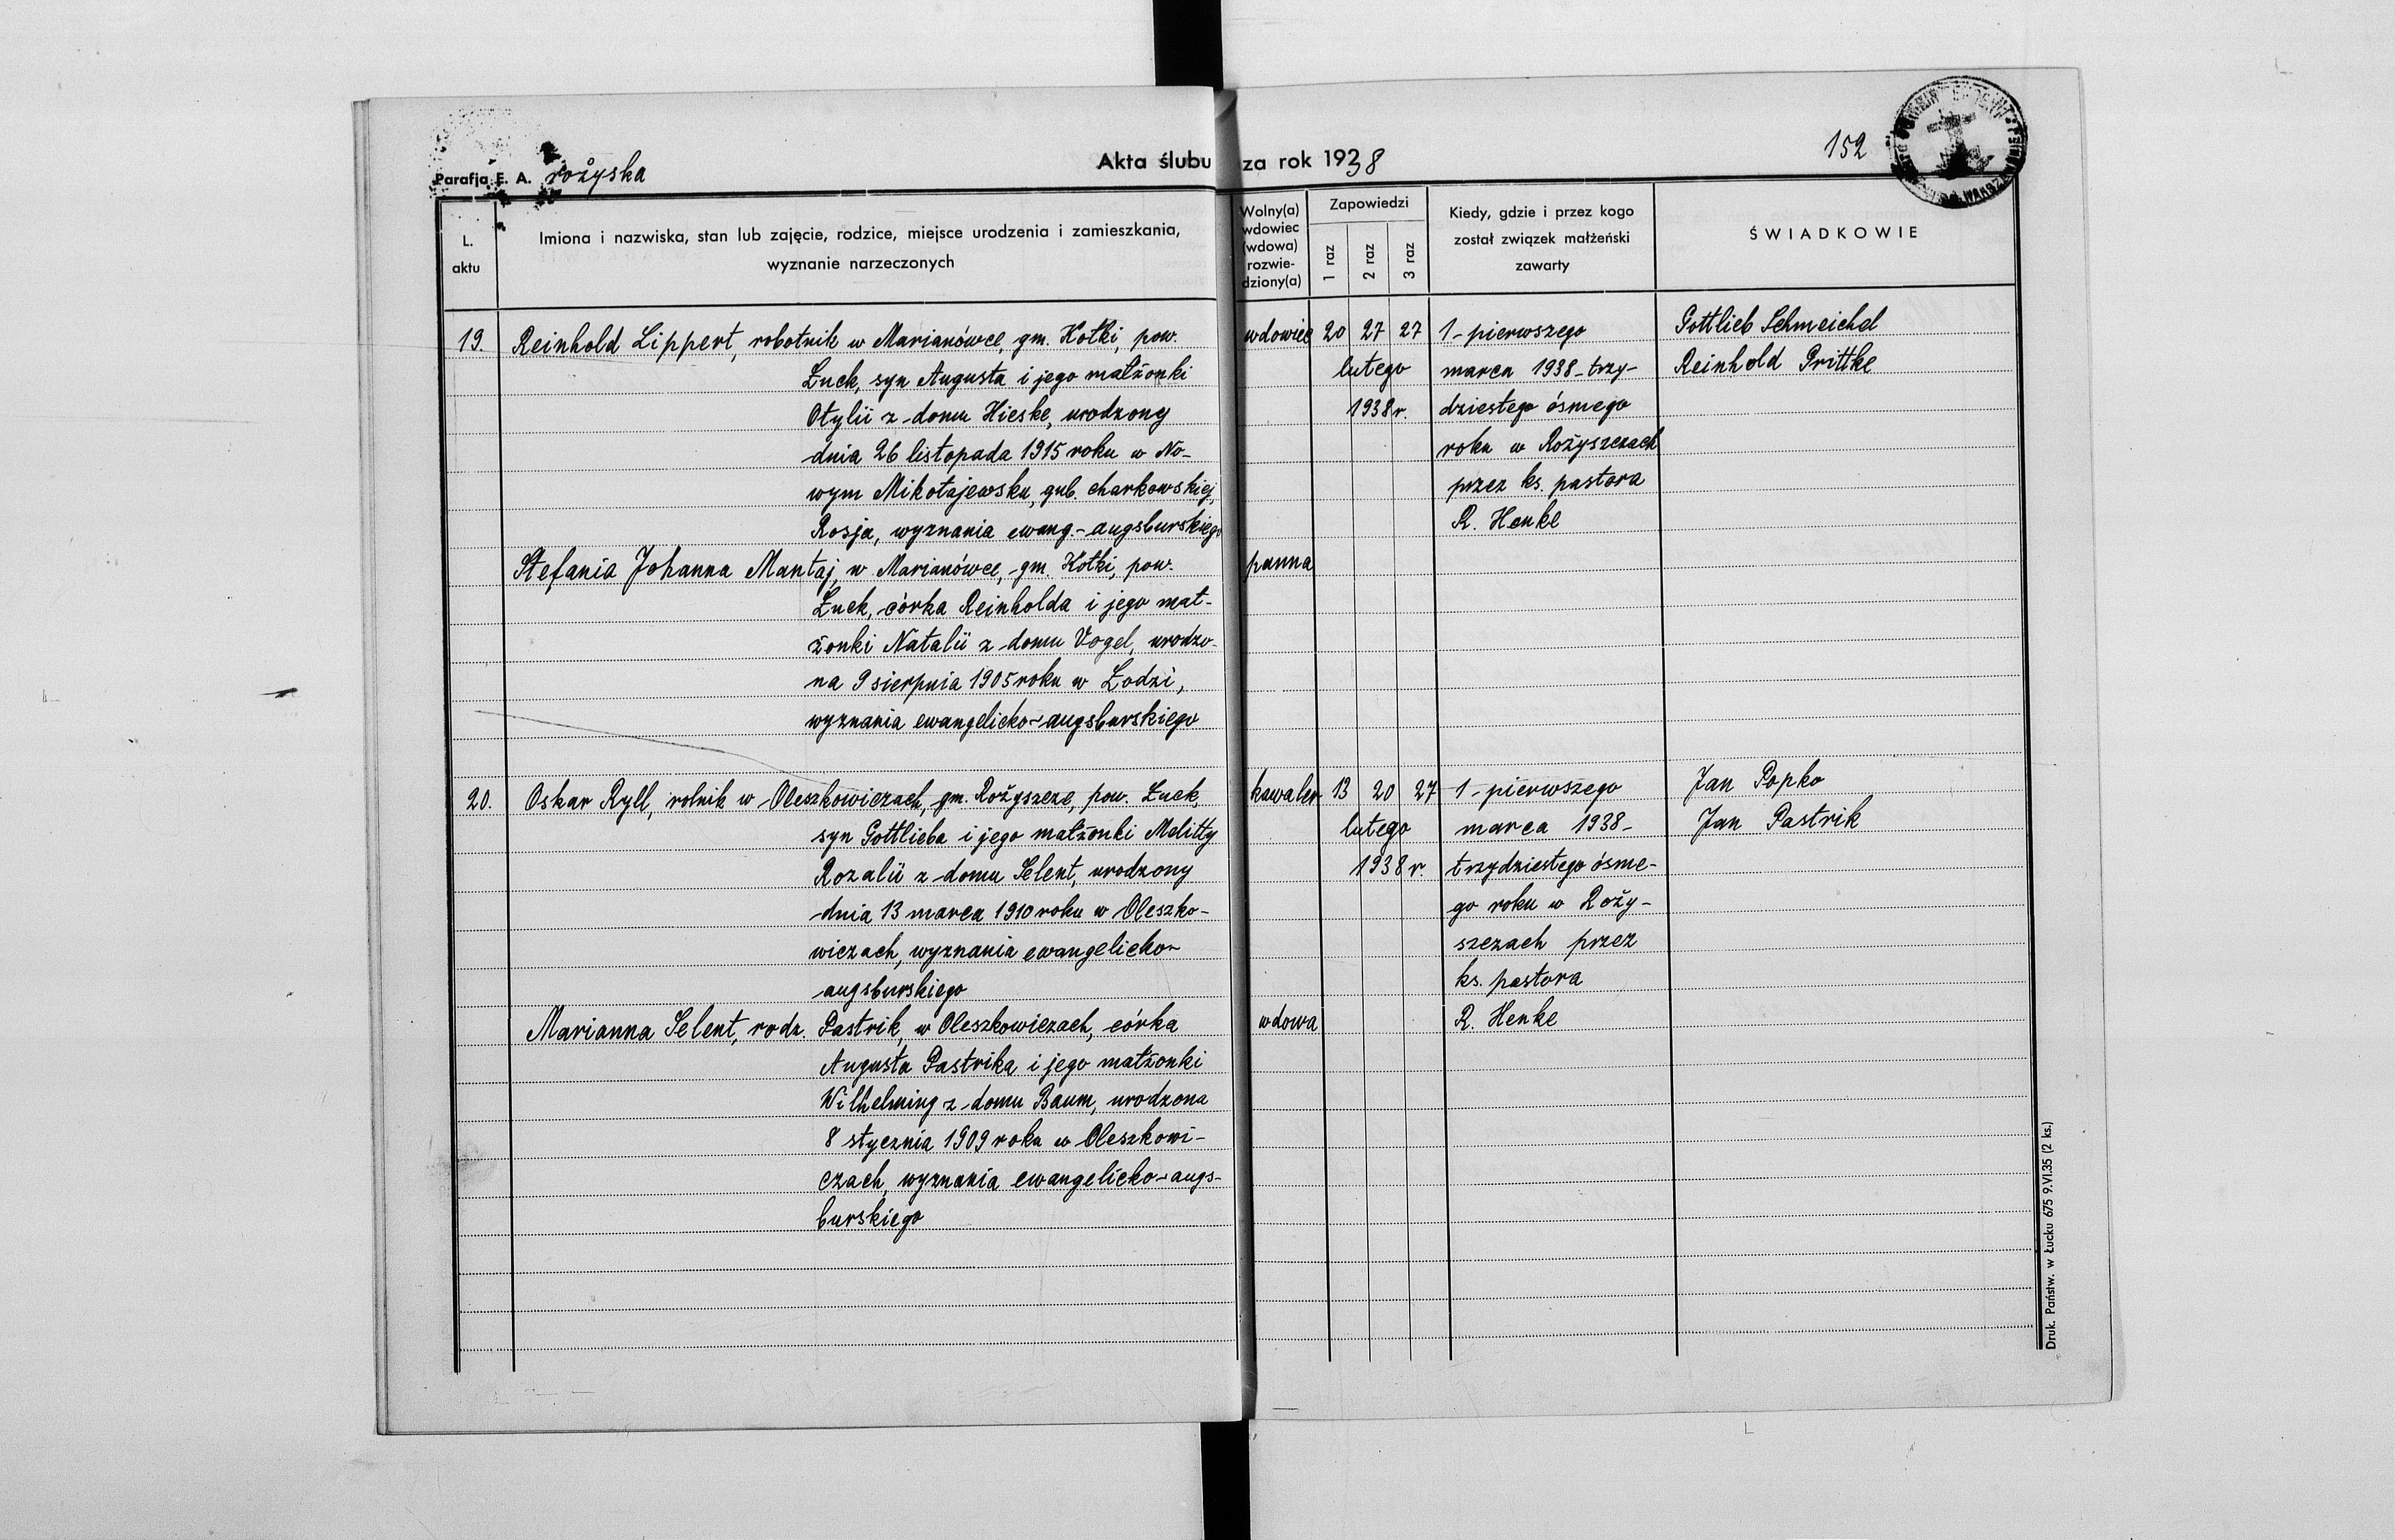 Parafja E. A. rożyska
Akta ślubu za rok 1938
152
L. aktu
Imiona i nazwiska, stan lub zajęcie, rodzice, miejsce urodzenia i zamieszkania, wyznanie narzeczonych
Wolny(a) wdowiec (wdowa) rozwie-dziony(a)
Zapowiedzi
1 raz
2 raz
3 raz
Kiedy, gdzie i przez kogo
został związek małżeński
zawarty
ŚWIADKOWIE
19.
Reinhold Lippert, robotnik w Marianówce, gm. Kołki, pow.
Łuck, syn Augusta i jego małżonki
Otylii z domu Hieske, urodzony
dnia 26 listopada 1915 roku w No-
wym Mikołajewsku, gub. charkowskiej,
Rosja, wyznania ewang.-augsburskiego
wdowiec
20 27 27
lutego
1938 r.
1 - pierwszego
marca 1938 - trzy-
dziestego ósmego
roku w Rożyszczach
przez ks. pastora
R. Henke
Gottlieb Schmeichel
Reinhold Prittke
Stefania Johanna Mantaj, w Marianówce, gm. Kołki, pow.
Łuck, córka Reinholda i jego mał-
żonki Natalii z domu Vogel, urodzo-
na 9 sierpnia 1905 roku w Łodzi,
wyznania ewangelicko-augsburskiego
panna
20.
Oskar Ryll, rolnik w Oleszkowiczach, gm. Rożyszcze, pow. Łuck,
syn Gottlieba i jego małżonki Melitty
Rozalii z domu Selent, urodzony
dnia 13 marca 1910 roku w Oleszko-
wiczach, wyznania ewangelicko-
augsburskiego
kawaler
13 20 27
lutego
1938 r.
1 - pierwszego
marca 1938 -
trzydziestego ósme-
go roku w Roży-
szczach przez
ks. pastora
R. Henke
Jan Popko
Jan Pastrik
Marianna Selent, rodz. Pastrik, w Oleszkowiczach, córka
Augusta Pastrika i jego małżonki
Wilhelminy z domu Baum, urodzona
8 stycznia 1909 roku w Oleszkowi-
czach, wyznania ewangelicko-augs-
burskiego
wdowa
Druk. Państw. w Łucku 675 9.VI.35 (2 ks.)